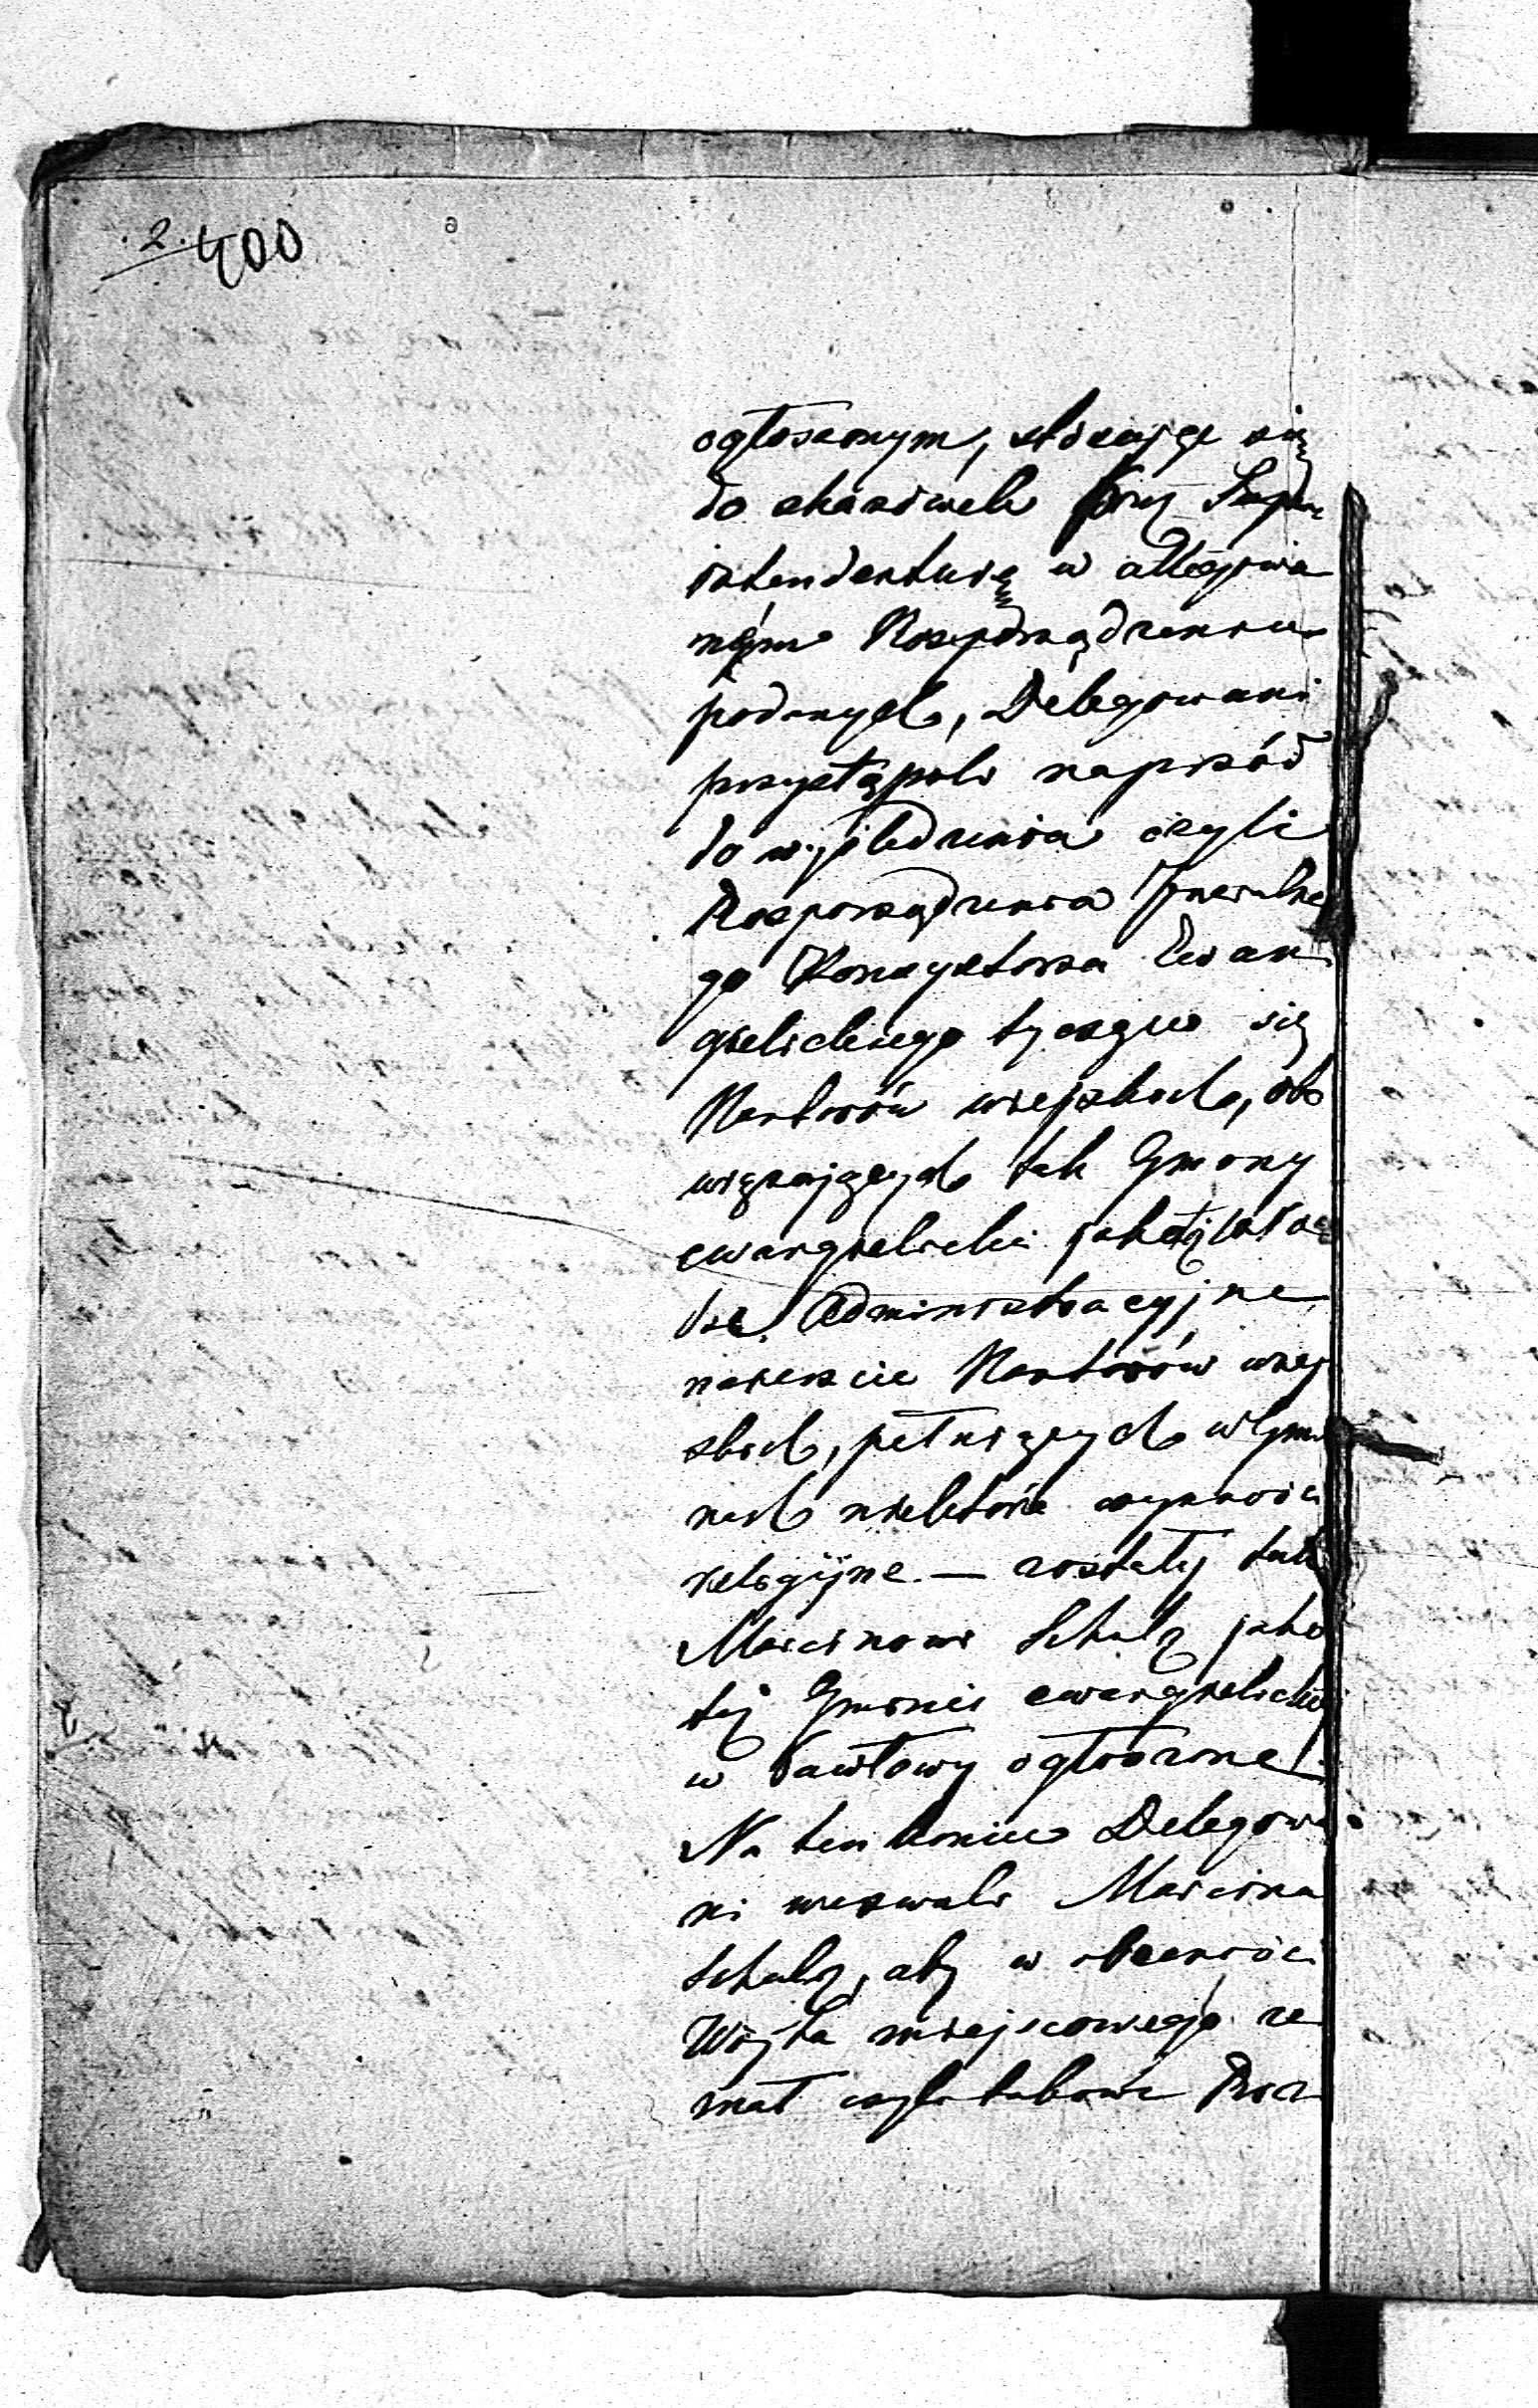 2. 400
ogłoszonym, stosując się
do skazówek przez Super
intendenturę w allegowa
nym Rozporządzeniu
podanych, Delegowani
przystąpili naprzód
do wyśledzenia czyli
Rozporządzenia Generalne
go Konsystorza Ewan
gielickiego tyczące się
Kantorów wiejskich, obo
więzujących tak Gminy
ewangielickie jako też Wła
dze Administracyjne
nareszcie Kantorów wiej
skich, pełniących w Gmi
nach niektóre czynności
religijne. — zostały tak
Marcinowi Schulz jako
tej Gminie ewangielickiej
w Pawłowy ogłoszone.
Na ten koniec Delegowa
ni wezwali Marcina
Schulz, aby w obecności
Wójta miejscowego ze
znał czyli takowe Roz